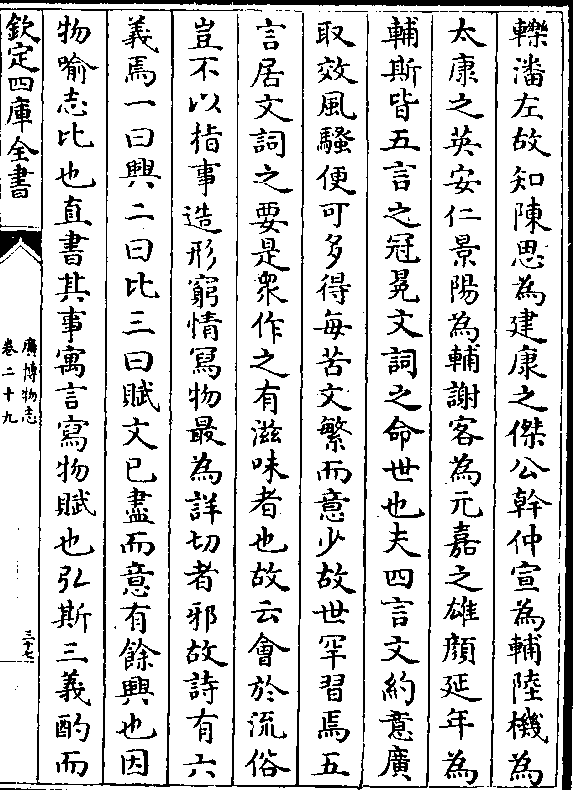 轢潘左故知陳思為建康之傑公幹仲宣為輔陸機為
太康之英安仁景陽為輔謝客為元嘉之雄顔延年為
輔斯皆五言之冠冕文詞之命世也夫四言文約意廣
取效風騷便可多得每苦文繁而意少故世罕習焉五
言居文詞之要是衆作之有滋味者也故云會於流俗
豈不以指事造形窮情冩物最為詳切者邪故詩有六
義焉一曰興二曰比三曰賦文已盡而意有餘興也因
物喻志比也直書其事寓言寫物賦也弘斯三義酌而
欽定四庫全書
廣博物志
卷二十九
三十七